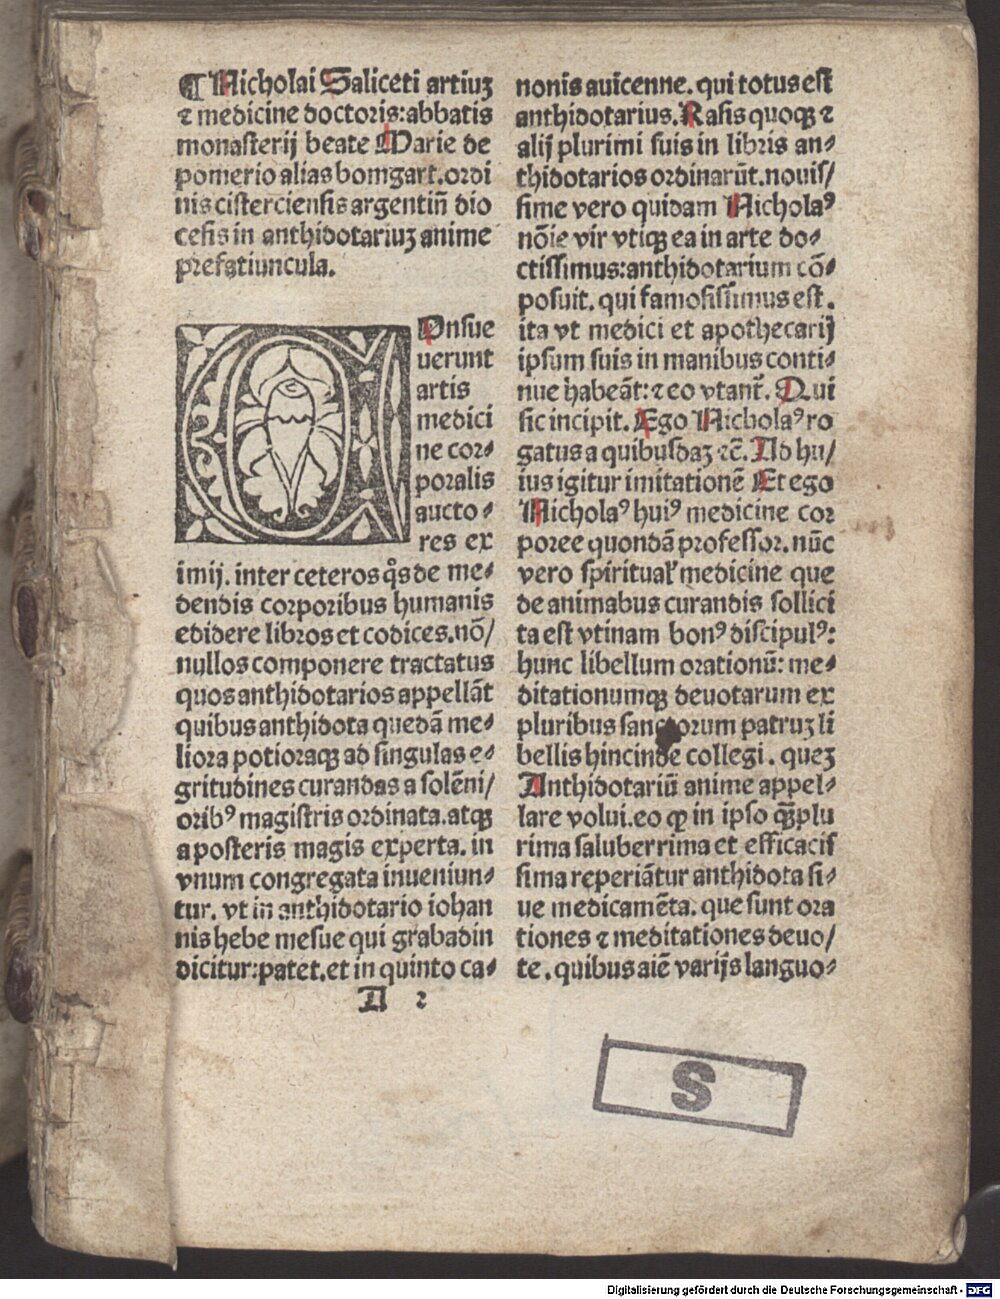 ¶ Nicholai Saliceti artiuꝫ
⁊ medicine doctoris: abbatis
monasterij beate Marie de
pomerio alias bomgart. ordi
nis cisterciensis argentiñ dio
cesis in anthidotariuꝫ anime
prefatiuncula.
COnsue
uerunt
artis
medici
ne cor⸗
poralis
aucto⸗
res ex
imij. inter ceteros q̊s de me⸗
dendis corporibus humanis
edidere libros et codices. nō/
nullos componere tractatus
quos anthidotarios appellāt
quibus anthidota quedā me⸗
liora potioraqꝫ ad singulas e⸗
gritudines curandas a solēni/
oribꝰ magistris ordinata. atqꝫ
a posteris magis experta. in
vnum congregata inueniun⸗
tur. vt in anthidotario iohan
nis hebe mesue qui grabadin
dicitur: patet. et in quinto ca⸗
A 2
nonis auicenne. qui totus est
anthidotarius. Rasis quoqꝫ ⁊
alij plurimi suis in libris an⸗
thidotarios ordinarūt. nouis/
sime vero quidam Nicholaꝰ
nōie vir vtiqꝫ ea in arte do⸗
ctissimus: anthidotarium cō⸗
posuit. qui famosissimus est.
ita vt medici et apothecarij
ipsum suis in manibus conti⸗
nue habeāt: ⁊ eo vtant᷑. Qui
sic incipit. Ego Nicholaꝰ ro
gatus a quibusdaꝫ ⁊c̄. Ad hu/
ius igitur imitationē Et ego
Nicholaꝰ huiꝰ medicine cor
poree quondā professor. nūc
vero spiritual̕ medicine que
de animabus curandis sollici
ta est vtinam bonꝰ discipulꝰ:
hunc libellum orationū: me⸗
ditationumqꝫ deuotarum ex
pluribus sanctorum patruꝫ li
bellis hincinde collegi. quez
Anthidotariū anime appel⸗
lare volui. eo ꝙ in ipso qꝫ̄plu
rima saluberrima et efficacis
sima reperiātur anthidota si⸗
ue medicamēta. que sunt ora
tiones ⁊ meditationes deuo/
te. quibus aīe varijs languo⸗
S
Digitalisierung gefördert durch die Deutsche Forschungsgemeinschaft - DFG